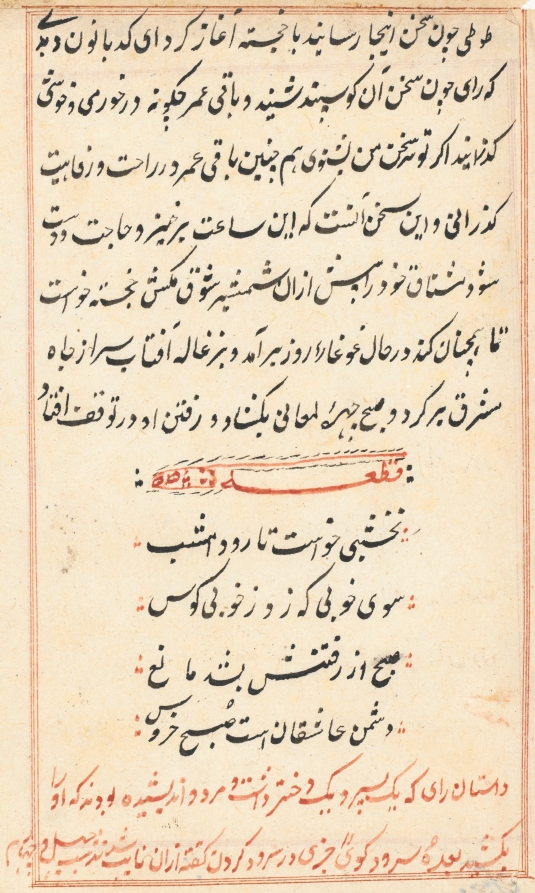 طوطی چون سخن اینجا رسانید با خجسته آغاز کرد ای کدبانو
که رای چون سخن آن کو سپند شنید و باقی عمر چگونه در خورمی و خوشی
کذرانید اکر تو نیز سخن من بشنوی هم چنین باقی عمر در راحت و رفاهیت
کذرانی و این سخن آنست که این ساعت برخیز و حاجت دوست
شو و مشتاق خود را پیش ازان شمشیر شوق مکش خجسته خواست
تا همچنان کند در حال غوغاء روز برآمد و بزغاله آفتاب سر از چاه
مشرق برکرد و صبح چهرهٔ لمعانی بکشاد و رفتن او در توقف افتاد
قطعه
نخشبی خواست تا رود امشب
سوی خوبی که زد ز خوبی کوس
صبح از رفتنش بشد مانع
دشمن عاشقان است صبح خروس
داستان رای که یک پسر و یک دختر داشت و مرد و اندیشیده بودند که او را
بکشید بعده سرود کوی آخری در سرود کردن کفته ازان شب چهل و